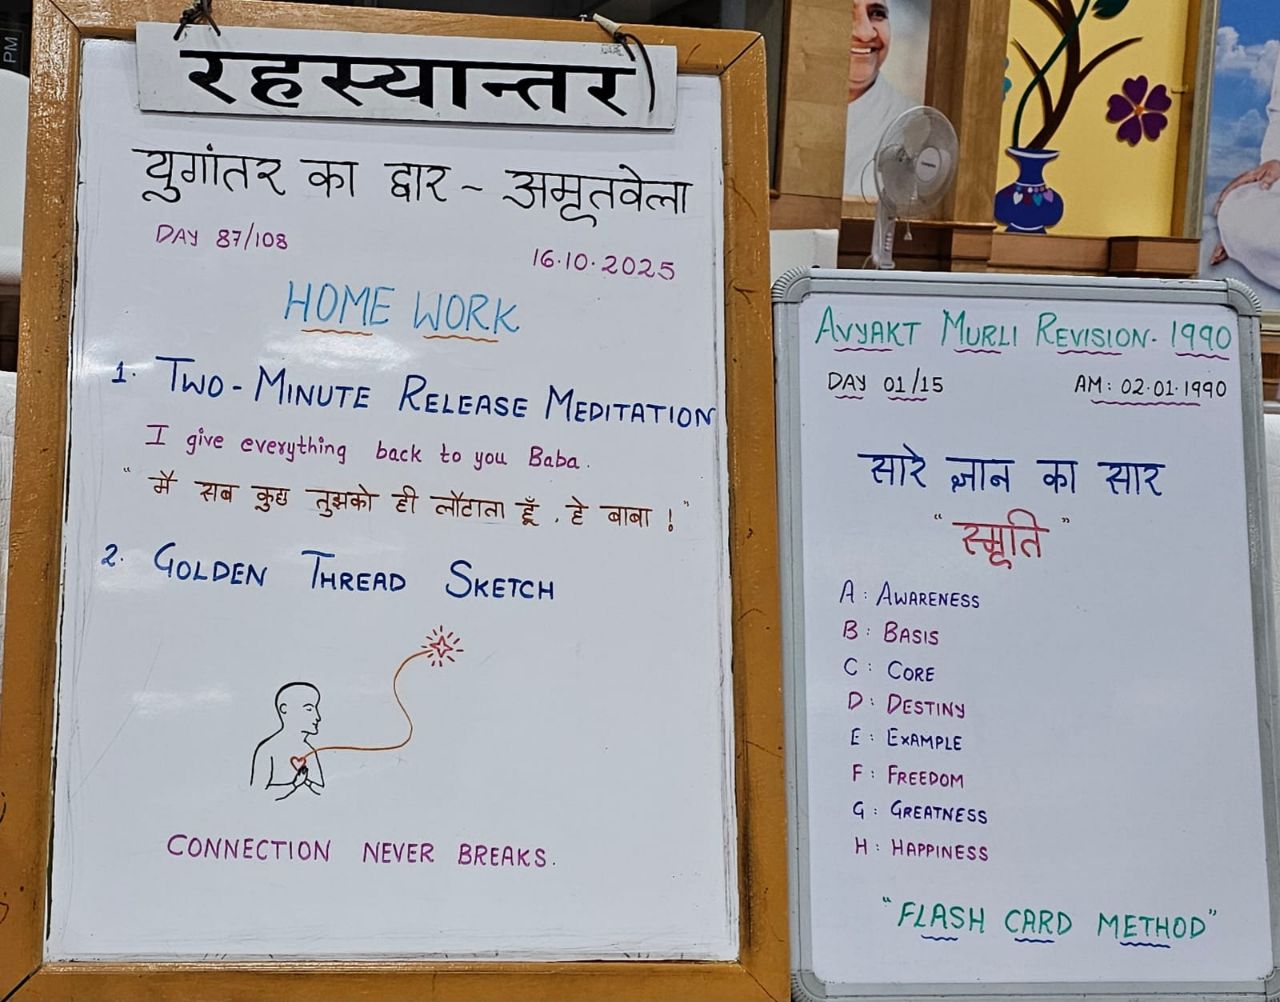 रहस्यान्तर
युगांतर का द्वार ~ अमृतवेला
DAY 87/108
16.10.2025
HOME WORK
1. TWO-MINUTE RELEASE MEDITATION
I give everything back to you Baba.
"मैं सब कुछ तुझको ही लौटाता हूँ, हे बाबा !"
2. GOLDEN THREAD SKETCH
CONNECTION NEVER BREAKS.
AVYAKT MURLI REVISION-1990
DAY 01/15
AM: 02.01.1990
सारे ज्ञान का सार
"स्मृति"
A: AWARENESS
B: BASIS
C: CORE
D: DESTINY
E: EXAMPLE
F: FREEDOM
G: GREATNESS
H: HAPPINESS
"FLASH CARD METHOD"
PM